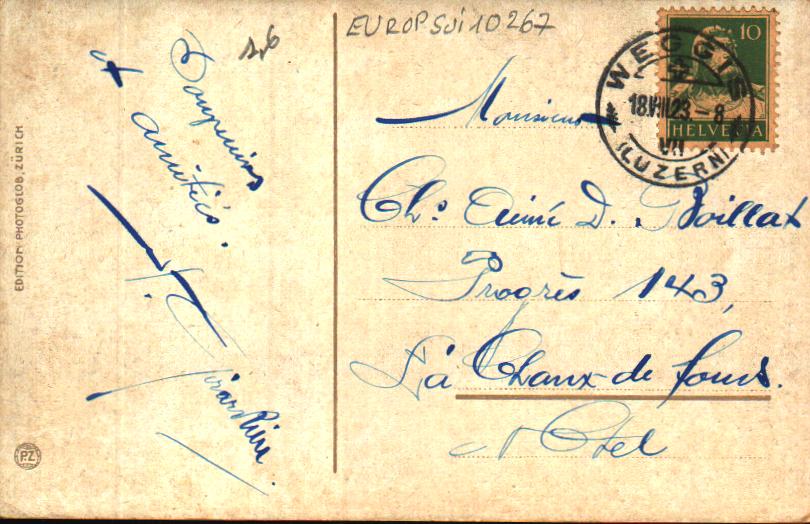 1,6
EUROPSUI10267
10
HELVETIA
WEGGIS
18.VII.23.-8
VII
(LUZERN)
EDITION PHOTOGLOB, ZÜRICH
PZ
et amitiés.
Monsieur
Chs Aimé D. Boillat
Progrès 143,
La Chaux-de fonds.